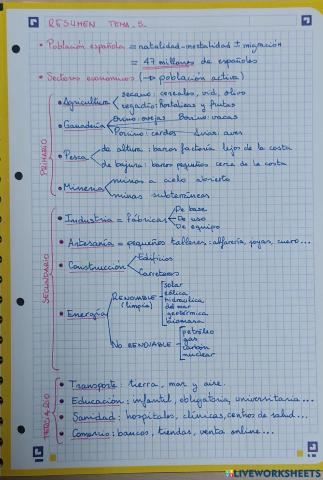 RESUMEN TEMA 5
• Población española = natalidad - mortalidad ± migración
= 47 millones de españoles
• Sectores económicos (→ población activa)
PRIMARIO
• Agricultura
secano: cereales, vid, olivo
regadío: hortalizas y frutas
• Ganadería
Ovino: ovejas Bovino: vacas
Porcino: cerdos Aves: aves
• Pesca
de altura: barcos factoría lejos de la costa
de bajura: barcos pequeños cerca de la costa
• Minería
minas a cielo abierto
minas subterráneas
SECUNDARIO
• Industria = fábricas
De base
De uso
De equipo
• Artesanía = pequeños talleres: alfarería, joyas, cuero...
• Construcción
Edificios
Carreteras
• Energía
RENOVABLE (limpia)
solar
eólica
hidráulica
del mar
geotérmica
biomasa
NO RENOVABLE
petróleo
gas
carbón
nuclear
TERCIARIO
• Transporte: tierra, mar y aire.
• Educación: infantil, obligatoria, universitaria...
• Sanidad: hospitales, clínicas, centros de salud...
• Comercio: bancos, tiendas, venta online...
LIVEWORKSHEETS